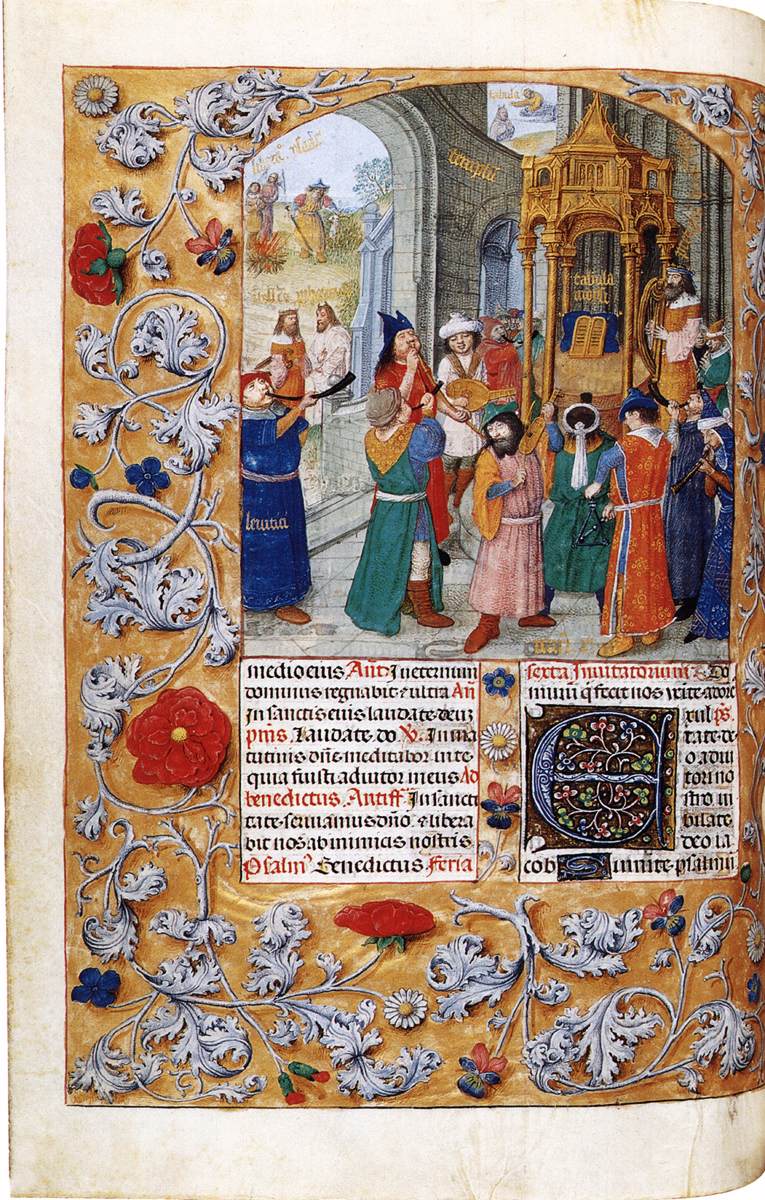 tabula
templū
tabula
leuitici
medio eius Añ In eternum
dominus regnabit ⁊ ultra Añ
In sanctis eius laudate deuz
pms̄ Laudate do V̄ In ma
tutinis dñe meditabor in te
quia fuisti adiutor meus Ad
benedictus Antiff̄ In sancti
tate seruiamus dño ⁊ libera
bit nos ab inimicis nostris
Psalm⁹ Benedictus Feria
sexta Inuitatorium Do
minū q̄ fecit nos uēite adore
E xul p̄s
tate de
o adiu
tori no
stro iu
bilate
deo ia
cob S umite psalmū